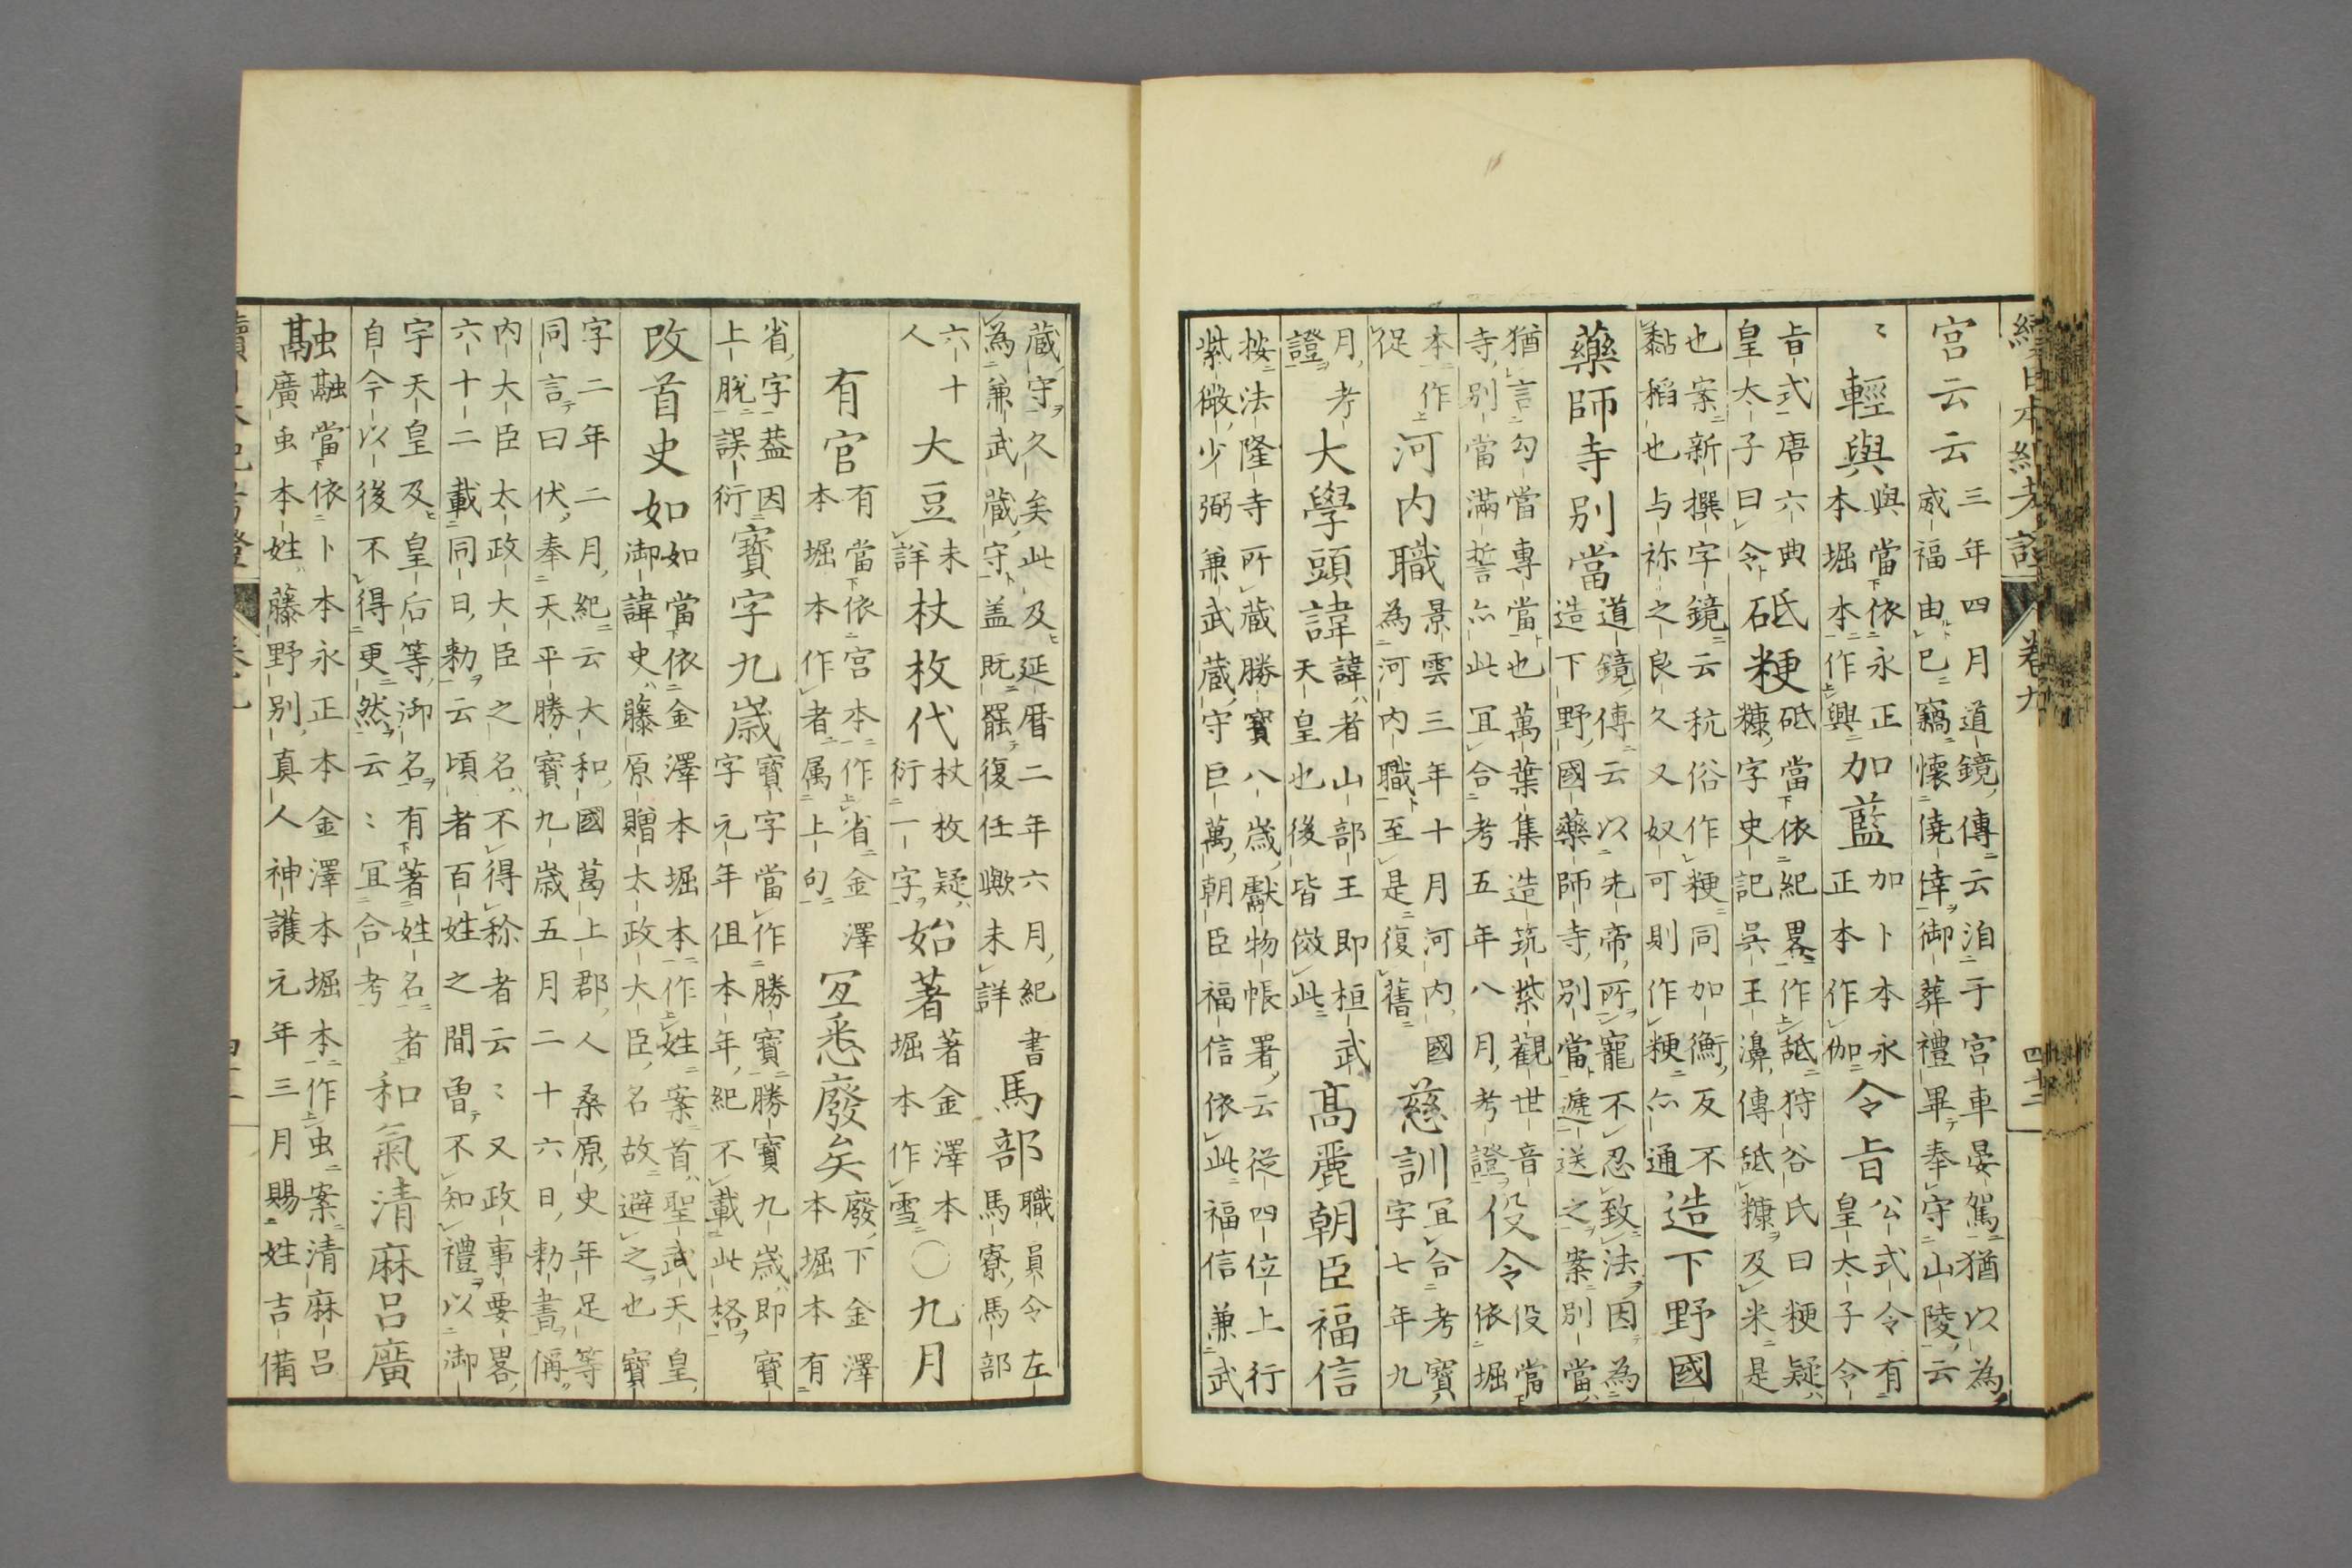 續日本紀考證 卷九 四十二
宮云云
三年四月道鏡傳云洎于宮車晏駕猶以為
威福由己竊懷僥倖御葬禮畢奉守山陵云
〻
輕與
與當依永正
本堀本作興
加藍
加卜本永
正本作伽
令旨
公式令有
皇太子令
旨式唐六典
皇太子曰令
砥粳
砥當依紀畧作舐狩谷氏曰粳疑
糠字史記吳王濞傳舐糠及米是
也案新撰字鏡云秔俗作粳同加衡反不
黏稻也与祢之良久又奴可則作粳亦通
造下野國
藥師寺別當
道鏡傳云以先帝所寵不忍致法因為
造下野國藥師寺別當遞送之案別當
猶言勾當專當也萬葉集造筑紫觀世音
寺別當滿誓亦此冝合考五年八月考證
役令
役當
依堀
本作
促
河內職
景雲三年十月河內國
為河內職至是復舊
慈訓
冝合考寶
字七年九
月考
證
大學頭諱
諱者山部王即桓武
天皇也後皆傚此
高麗朝臣福信
按法隆寺所藏勝寶八歲獻物帳署云從四位上行
紫微少弼兼武藏守巨萬朝臣福信依此福信兼武
藏守久矣此及延暦二年六月紀書
為兼武藏守盖既罷復任歟未詳
馬部
職員令左
馬寮馬部
六十
人
大豆
未
詳
杖枚代
杖枚疑
衍一字
始著
著金澤本
堀本作雪
〇九月
有官
有當依宮本作省金澤
本堀本作者属上句
冝悉廢矣
廢下金澤
本堀本有
省字葢因
上脫誤衍
寶字九歲
寶字當作勝寶勝寶九歲即寶
字元年但本年紀不載此格
改首史如
如當依金澤本堀本作姓案首聖武天皇
御諱史藤原贈太政大臣名故避之也寶
字二年二月紀云大和國葛上郡人桑原史年足等
同言曰伏奉天平勝寶九歲五月二十六日勅書偁
內大臣太政大臣之名不得称者云〻又政事要畧
六十二載同日勅云頃者百姓之間曽不知禮以御
宇天皇及皇后等御名有著姓名者
自今以後不得更然云〻冝合考
和氣清麻呂廣
融
融當依卜本永正本金澤本堀本作虫案清麻呂
廣虫本姓藤野別真人神護元年三月賜姓吉備